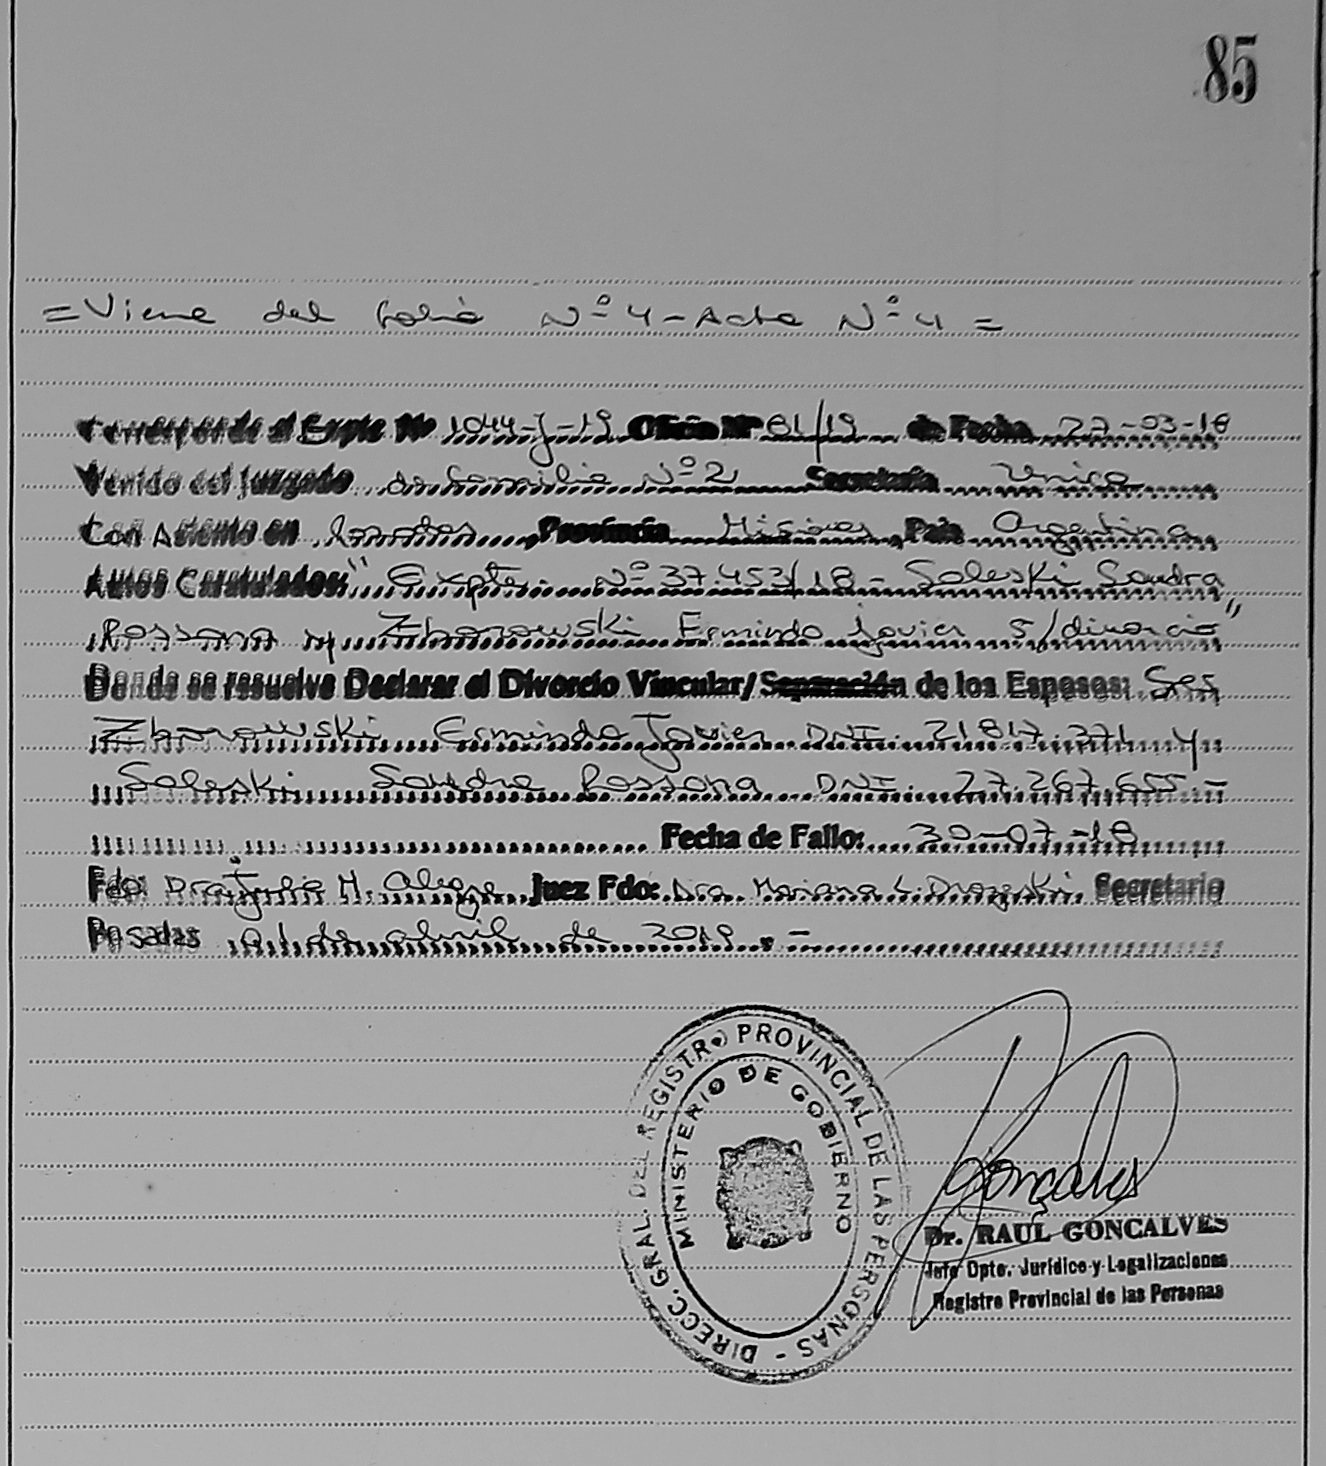 85
= Viene del folio Nº 4 - Acta Nº 4 =
Corresponde al Expte Nº 1044-J-19 Oficio Nº 81/19 de Fecha 27-03-18
Venido del Juzgado de Familia Nº 2 Secretaría Unica
Con Asiento en Posadas, Provincia Misiones, País Argentina
Autos Caratulados: "Expte. Nº 37.453/18 - Soleski Sandra
Rossana y Zbanowski Ermindo Javier s/divorcio"
Donde se resuelve Declarar el Divorcio Vincular/Separación de los Esposos: Sres
Zbanowski Ermindo Javier DNI. 21.817.371 y
Soleski Sandra Rossana DNI. 27.267.655.-
Fecha de Fallo: 30-07-18
Fdo: Dra. Julia M. Alegre Juez Fdo: Dra. Mariana L. Secretario
Posadas de abril de 2019.-
DIRECC. GRAL. DEL REGISTRO PROVINCIAL DE LAS PERSONAS -
MINISTERIO DE GOBIERNO
Goncalves
Dr. RAUL GONCALVES
Jefe Dpto. Jurídico y Legalizaciones
Registro Provincial de las Personas